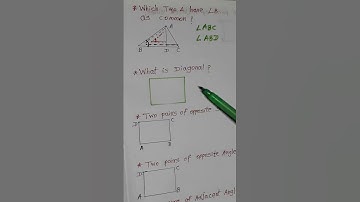 * Which Two Δ have ∠B
as common?
∠ABC
∠ABD
A
B D C
* What is Diagonal?
* Two pairs of opposite
D C
A B
* Two pairs of opposite Angle
D C
A B
of Adjacent Angl